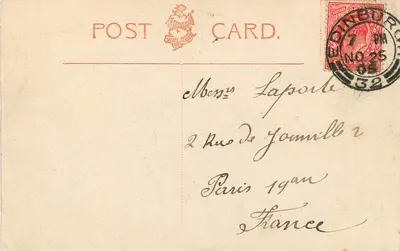 POST CARD.
EDINBURGH
7 PM
NO 25
05
32
Messrs Laporte
2 Rue de Joinville 2
Paris 19an
France